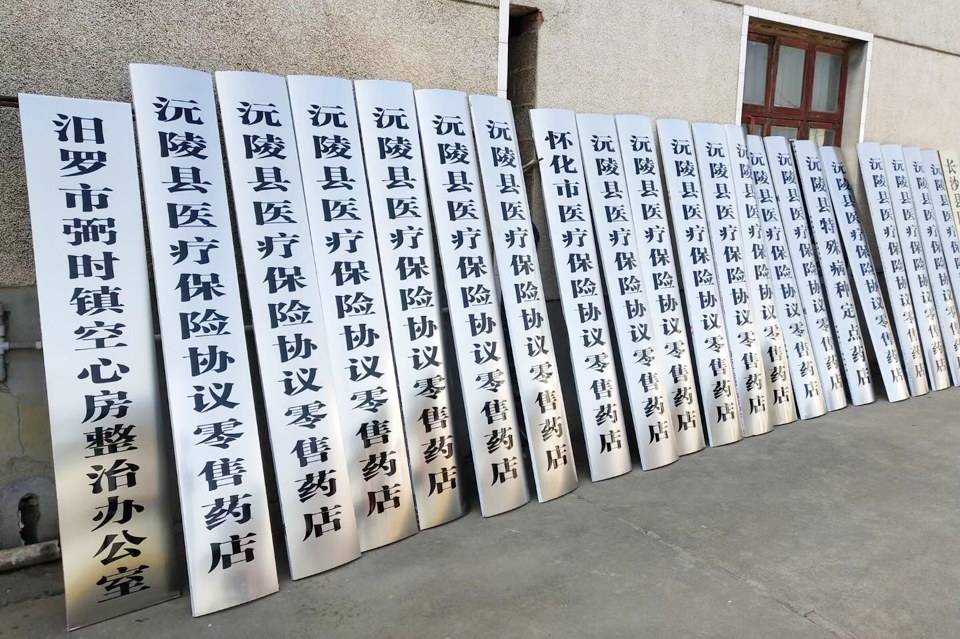 汨罗市弼时镇空心房整治办公室
沅陵县医疗保险协议零售药店
沅陵县医疗保险协议零售药店
沅陵县医疗保险协议零售药店
沅陵县医疗保险协议零售药店
沅陵县医疗保险协议零售药店
沅陵县医疗保险协议零售药店
怀化市医疗保险协议零售药店
沅陵县医疗保险协议零售药店
沅陵县医疗保险协议零售药店
沅陵县医疗保险协议零售药店
沅陵县医疗保险协议零售药店
沅陵县医疗保险协议零售药店
沅陵县医疗保险协议零售药店
沅陵县医疗保险协议零售药店
沅陵县特殊病种定点药店
沅陵县医疗保险协议零售药店
沅陵县医疗保险协议零售药店
沅陵县医疗保险协议零售药店
沅陵县医疗保险协议零售药店
沅陵县医疗保险协议零售
长沙县